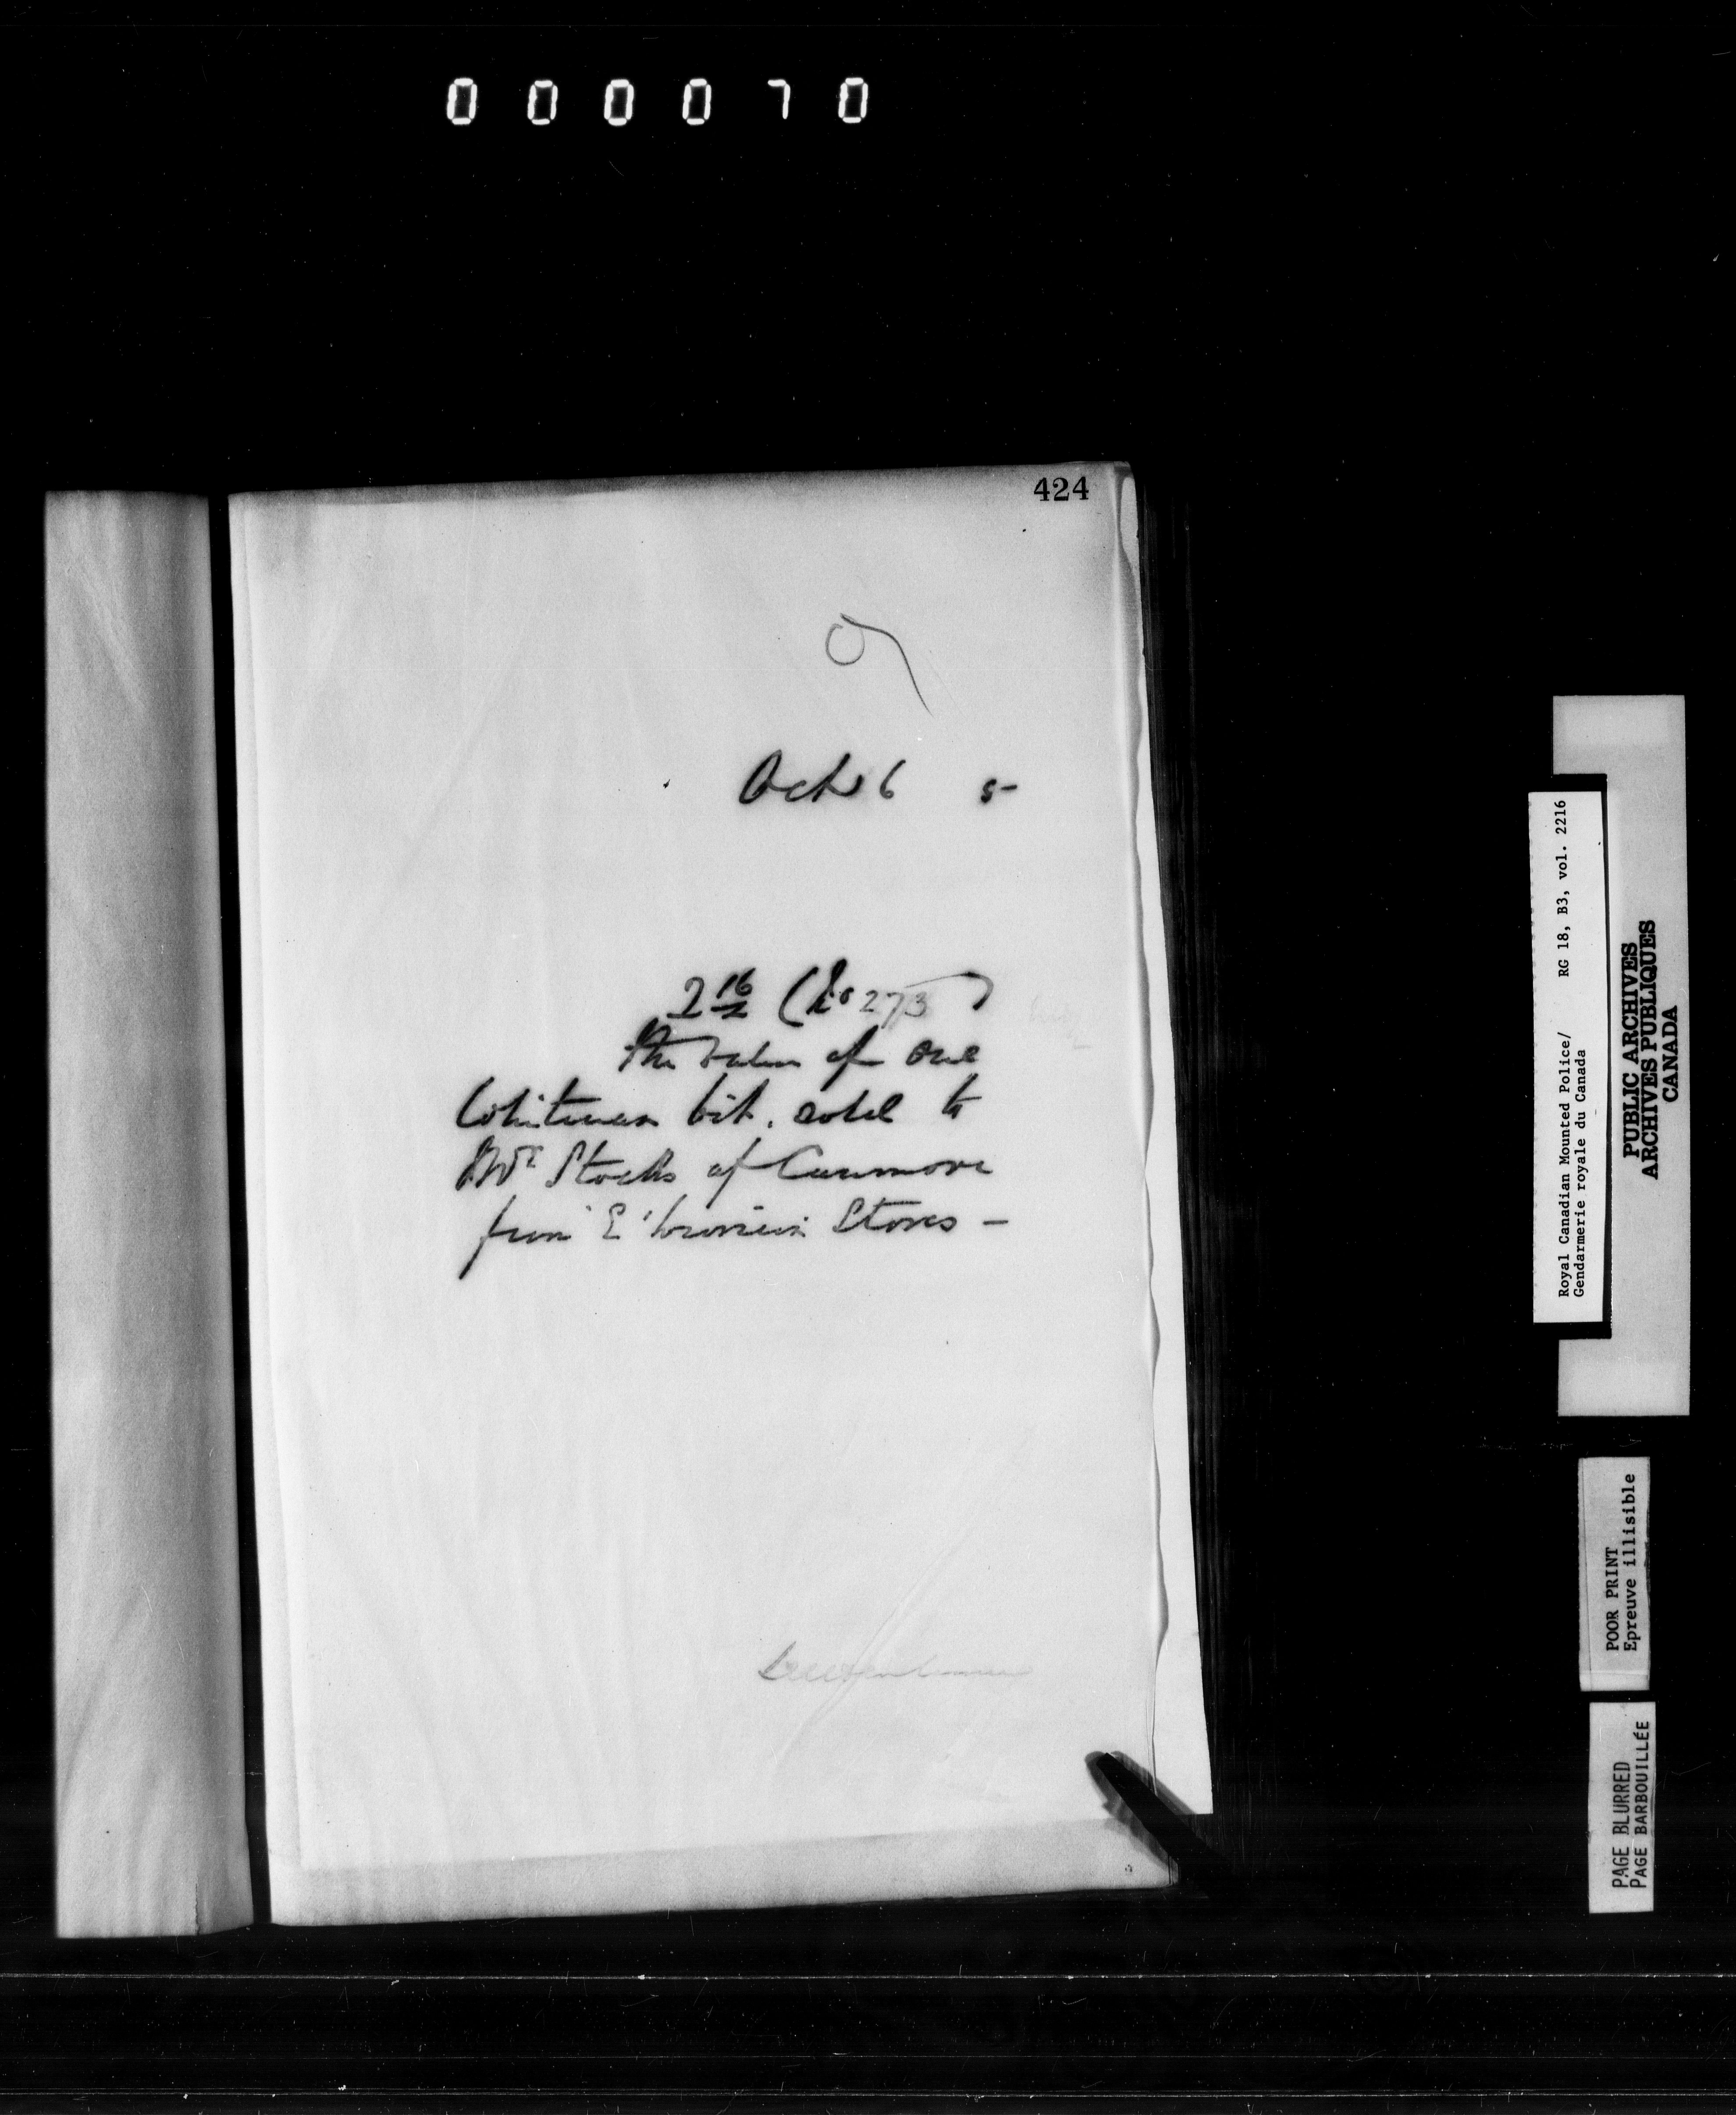 000070
424
Oct 6 5
2 16 (No 273)
the value of one
Whitman bit. sold to
Mr Stocks of Canmore
from E Division Stores -
Royal Canadian Mounted Police/ RG 18, B3, vol. 2216
Gendarmerie royale du Canada
PUBLIC ARCHIVES
ARCHIVES PUBLIQUES
CANADA
POOR PRINT
Epreuve illisible
PAGE BLURRED
PAGE BARBOUILLÉE